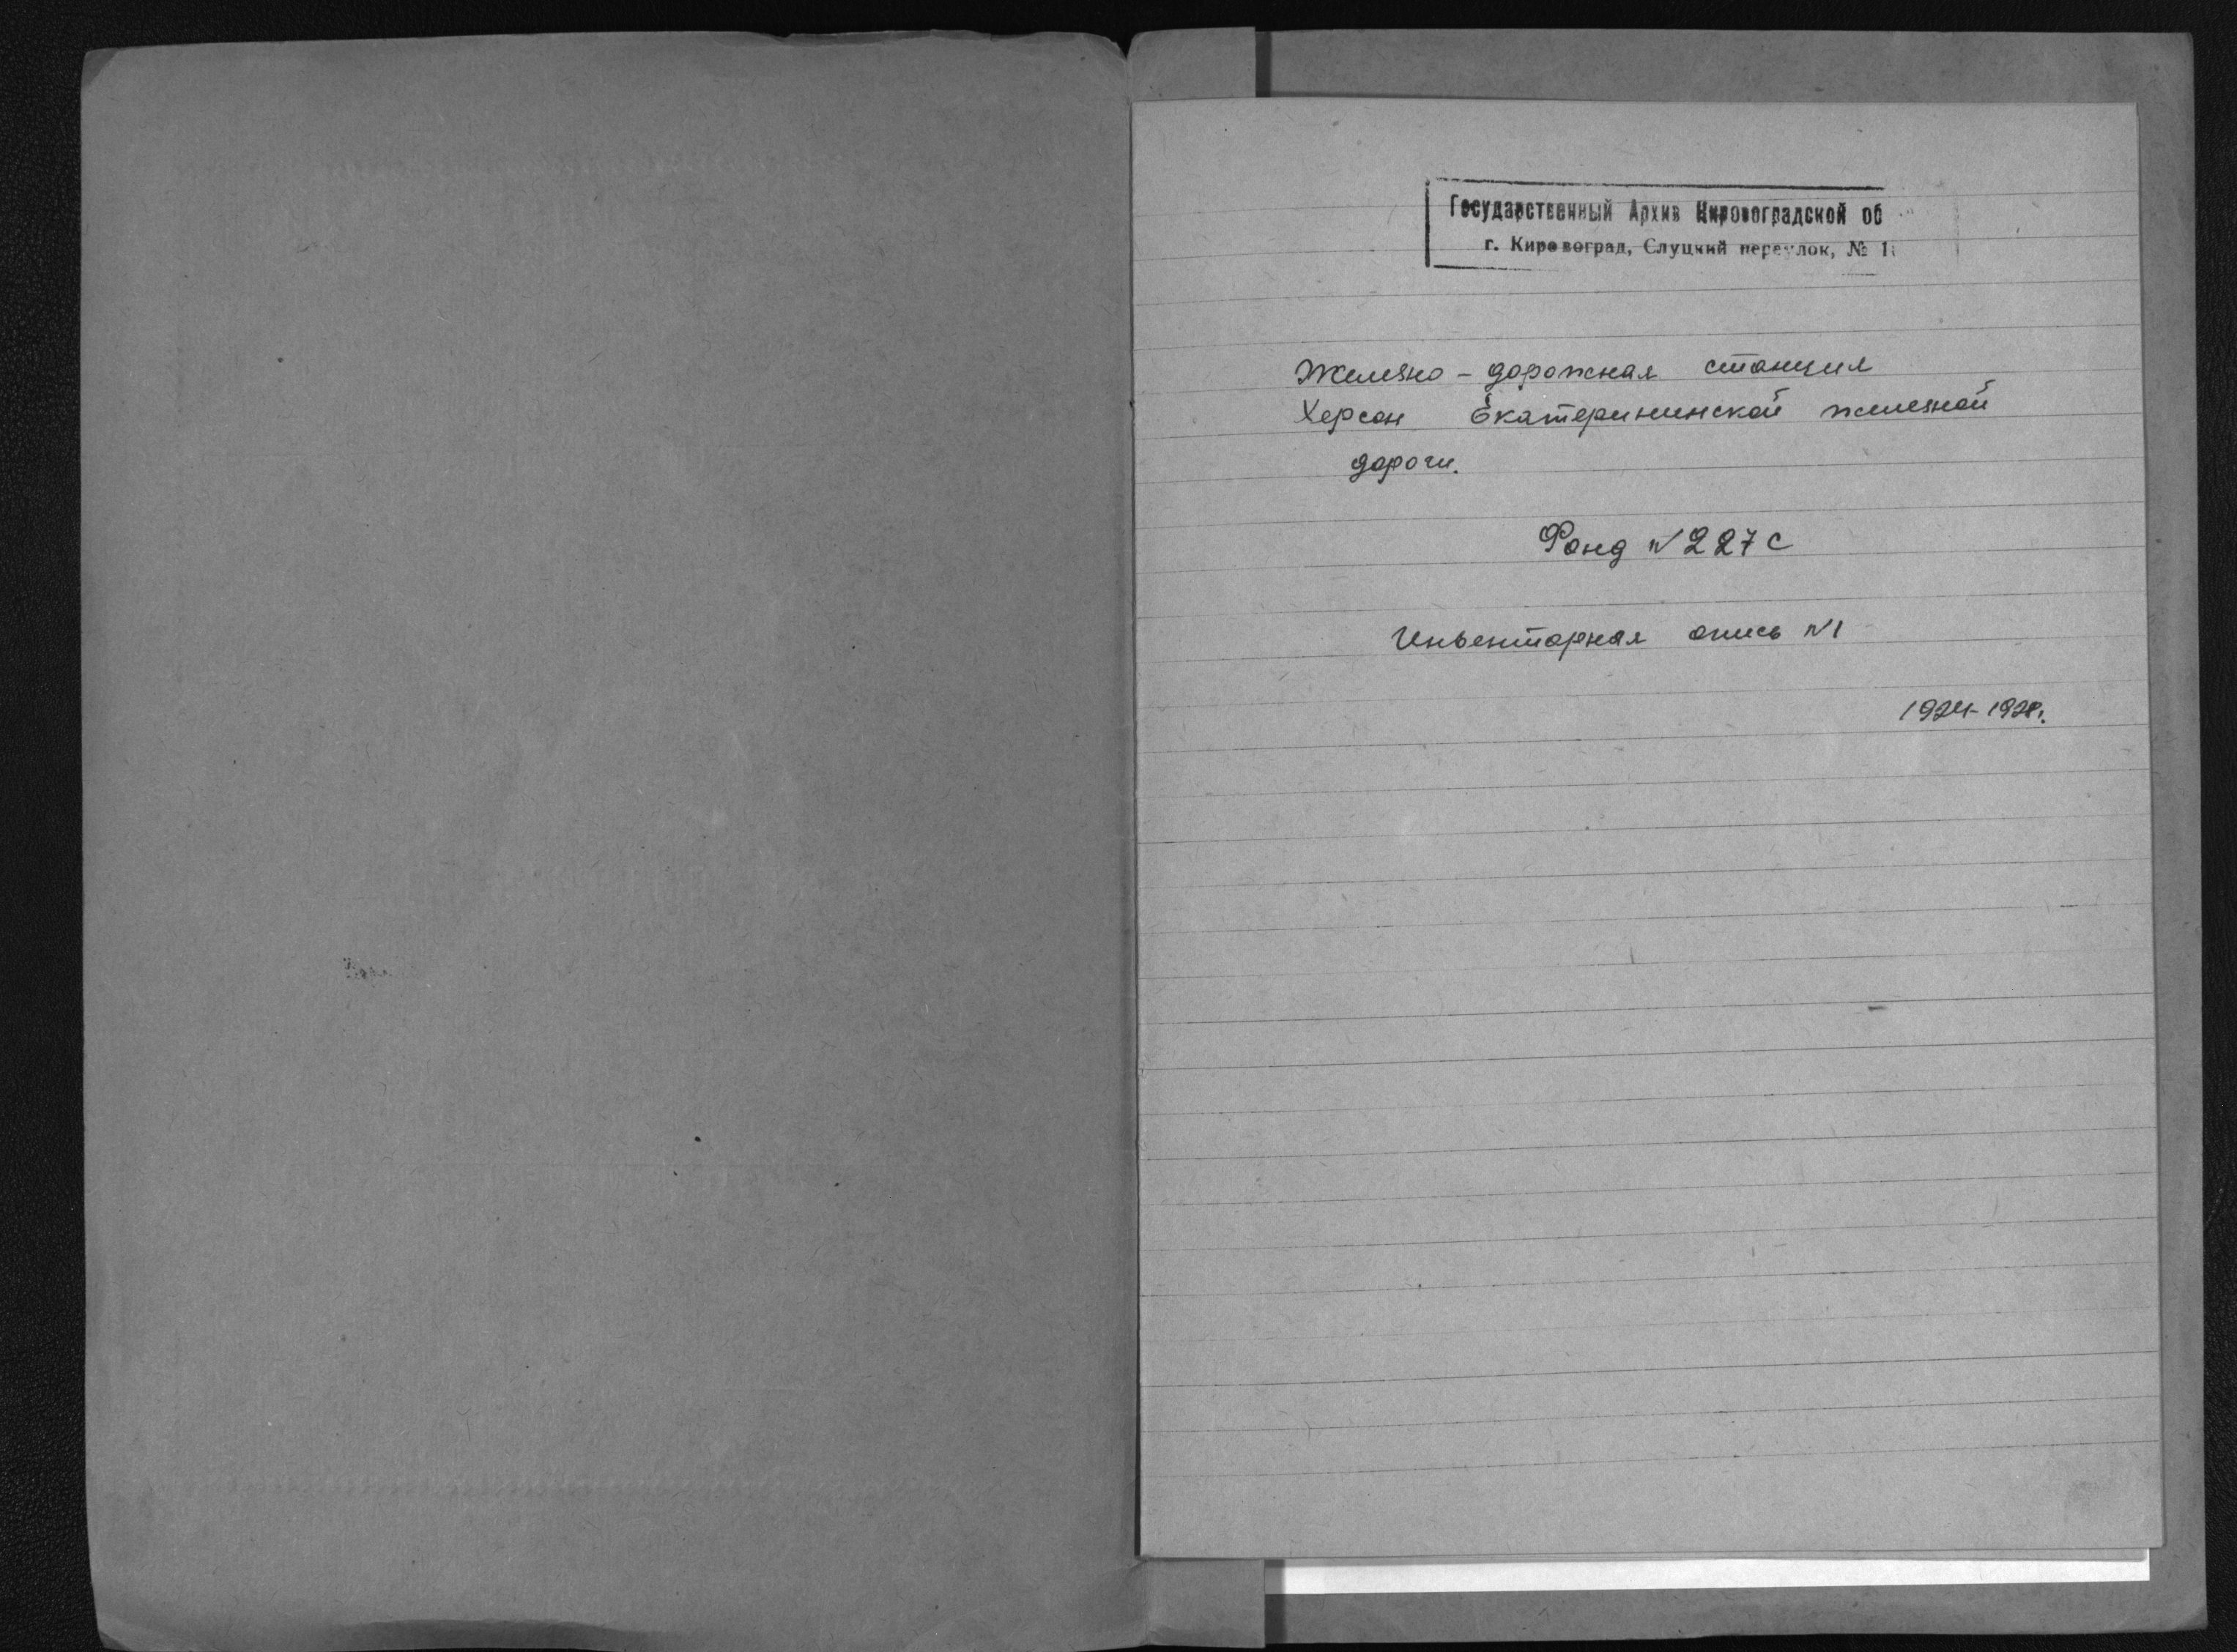 Государственный Архив Кировоградской об
г. Кировоград, Слуцкий переулок, № 1
Железно-дорожная станция
Херсон Екатерининской железной
дороги.
Фонд №227с
Инвентарная опись №1
1924-1928.